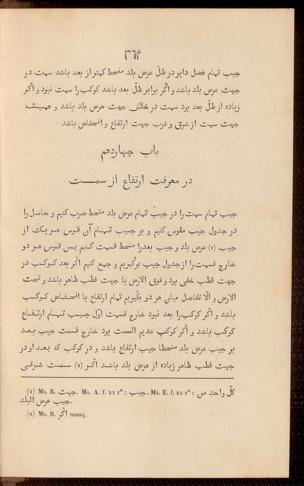 ٣٦٤
جیب تمام فضل دایر در ظلّ عرض بلد منحط کهتر از بعد باشد سمت در
جهت عرض بلد باشد و اگر برابر ظلّ بعد باشد کوکب را سمت نبود و اگر
زیاده از ظلّ بعد بود سمت در خلاف جهت عرض بلد باشد و همیشه
جهت سمت از شرق و غرب جهت ارتفاع و انخفاض باشد
باب چهاردهم
در معرفت ارتفاع از سمت
جیب تمام سمت را در جیب تمام عرض بلد منحط ضرب کنیم و حاصل را
در جدول جیب مقوس کنیم و بر جیب تمام آن قوس هر یک از
جیب (١) عرض بلد و جیب بعد را منحط قسمت کنیم پس قوس هر دو
خارج قسمت را از جدول جیب برگیریم و جمع کنیم اگر بعد کوکب در
جهت قطب خفی بود و فوق الارض یا جهت قطب ظاهر باشد و تحت
الارض و الّا تفاضل میان هر دو بگیریم تمام ارتفاع یا انخفاض کوکب
باشد و اگر کوکب را بعد نبود خارج قسمت اوّل جیب تمام ارتفاع
کوکب باشد و اگر کوکب عدیم السمت بود خارج قسمت جیب بعد
بر جیب عرض بلد منحطا جیب ارتفاع باشد و در کوکب که بعد او در
جهت قطب ظاهر زیاده از عرض بلد باشد اگر (٢) سمت شرقی
(١) Ms. B. جهت. Ms. A. f. 21 r°: جیب. Ms. E. f. 21 r°: کلّ واحد من
جیب عرض البلد.
(٢) Ms. B. اگر manq.